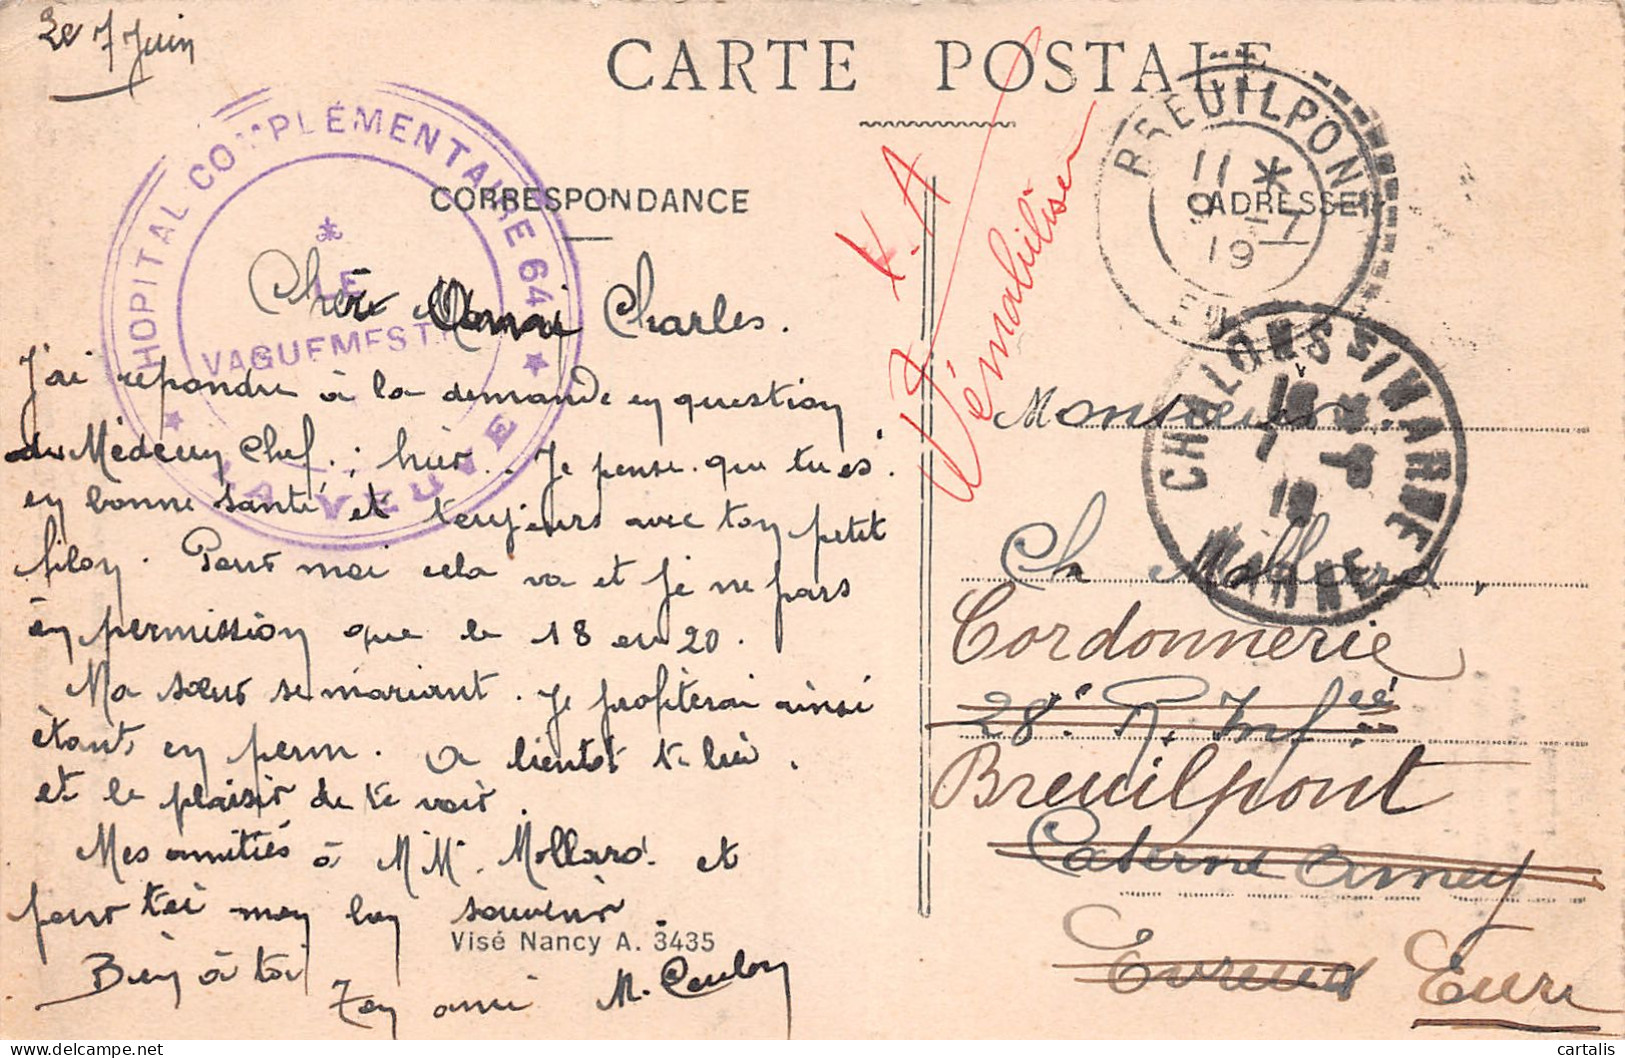 Le 7 Juin
CARTE POSTALE
CORRESPONDANCE
ADRESSE
HOPITAL COMPLÉMENTAIRE 64
LE
VAGUEMEST
LA VEUVE
BREUILPONT
11 *
9 - 7
19
EURE
CHALONS S/MARNE
MARNE
V. A
Démobiliser
Cher Ami Charles.
J'ai repondre à la demande en question
du Médecin Chef. ; hier. Je pense que tu es
en bonne santé et toujours avec ton petit
filon. Pour moi cela va et je ne pars
en permission que le 18 ou 20.
Ma sœur se mariant. Je profiterai ainsi
étant en perm. a bientot
et le plaisir de te voir.
Mes amitiés à M Mme Mollard et
pour toi mon bon souvenir.
Bien à toi
Ton ami M. Coulon
Visé Nancy A. 3435
Monsieur
Ch Mollard,
Cordonnerie
28e R. Inf
Breuilpont
Caserne Amey
Evreux Eure
cartalis